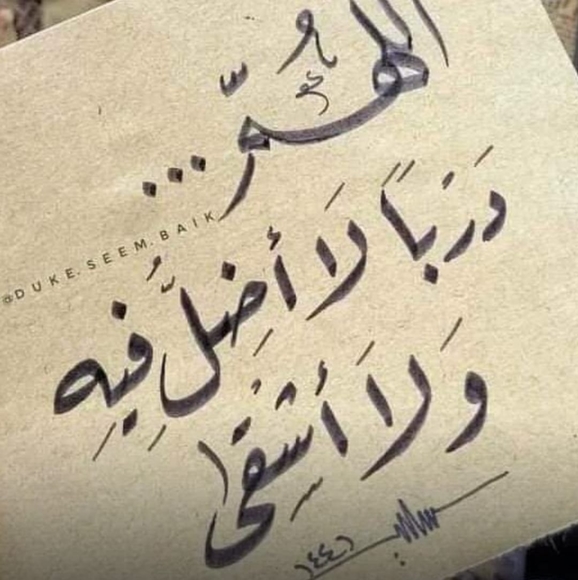 اللهمّ...
دَرْبًا لَا أَضِلُّ فِيهِ
وَلَا أَشْقَى
١٤٤٦
@DUKE.SEEM.BAIK